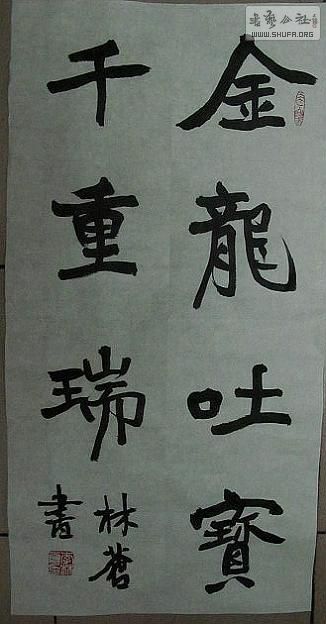 金龍吐寶
千重瑞
林蒼
書
书艺公社
WWW.SHUFA.ORG